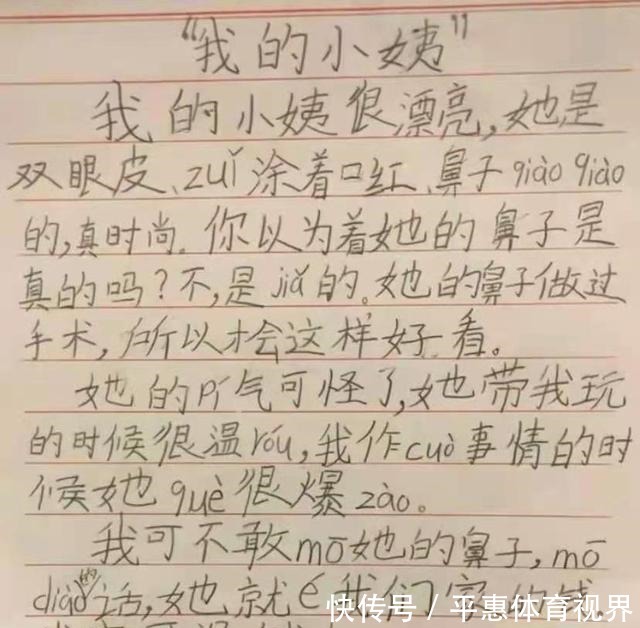 “我的小姨”
我的小姨很漂亮,她是
双眼皮、zuǐ涂着口红、鼻子qiào qiào
的,真时尚。你以为着她的鼻子是
真的吗?不,是jiǎ的。她的鼻子做过
手术,所以才会这样好看。
她的pí气可怪了,她带我玩
的时候很温róu,我作cuò事情的时
候她què很爆zào。
我可不敢mō她的鼻子,mō
diào的话,她就é我们家的钱
快传号 / 平惠体育视界